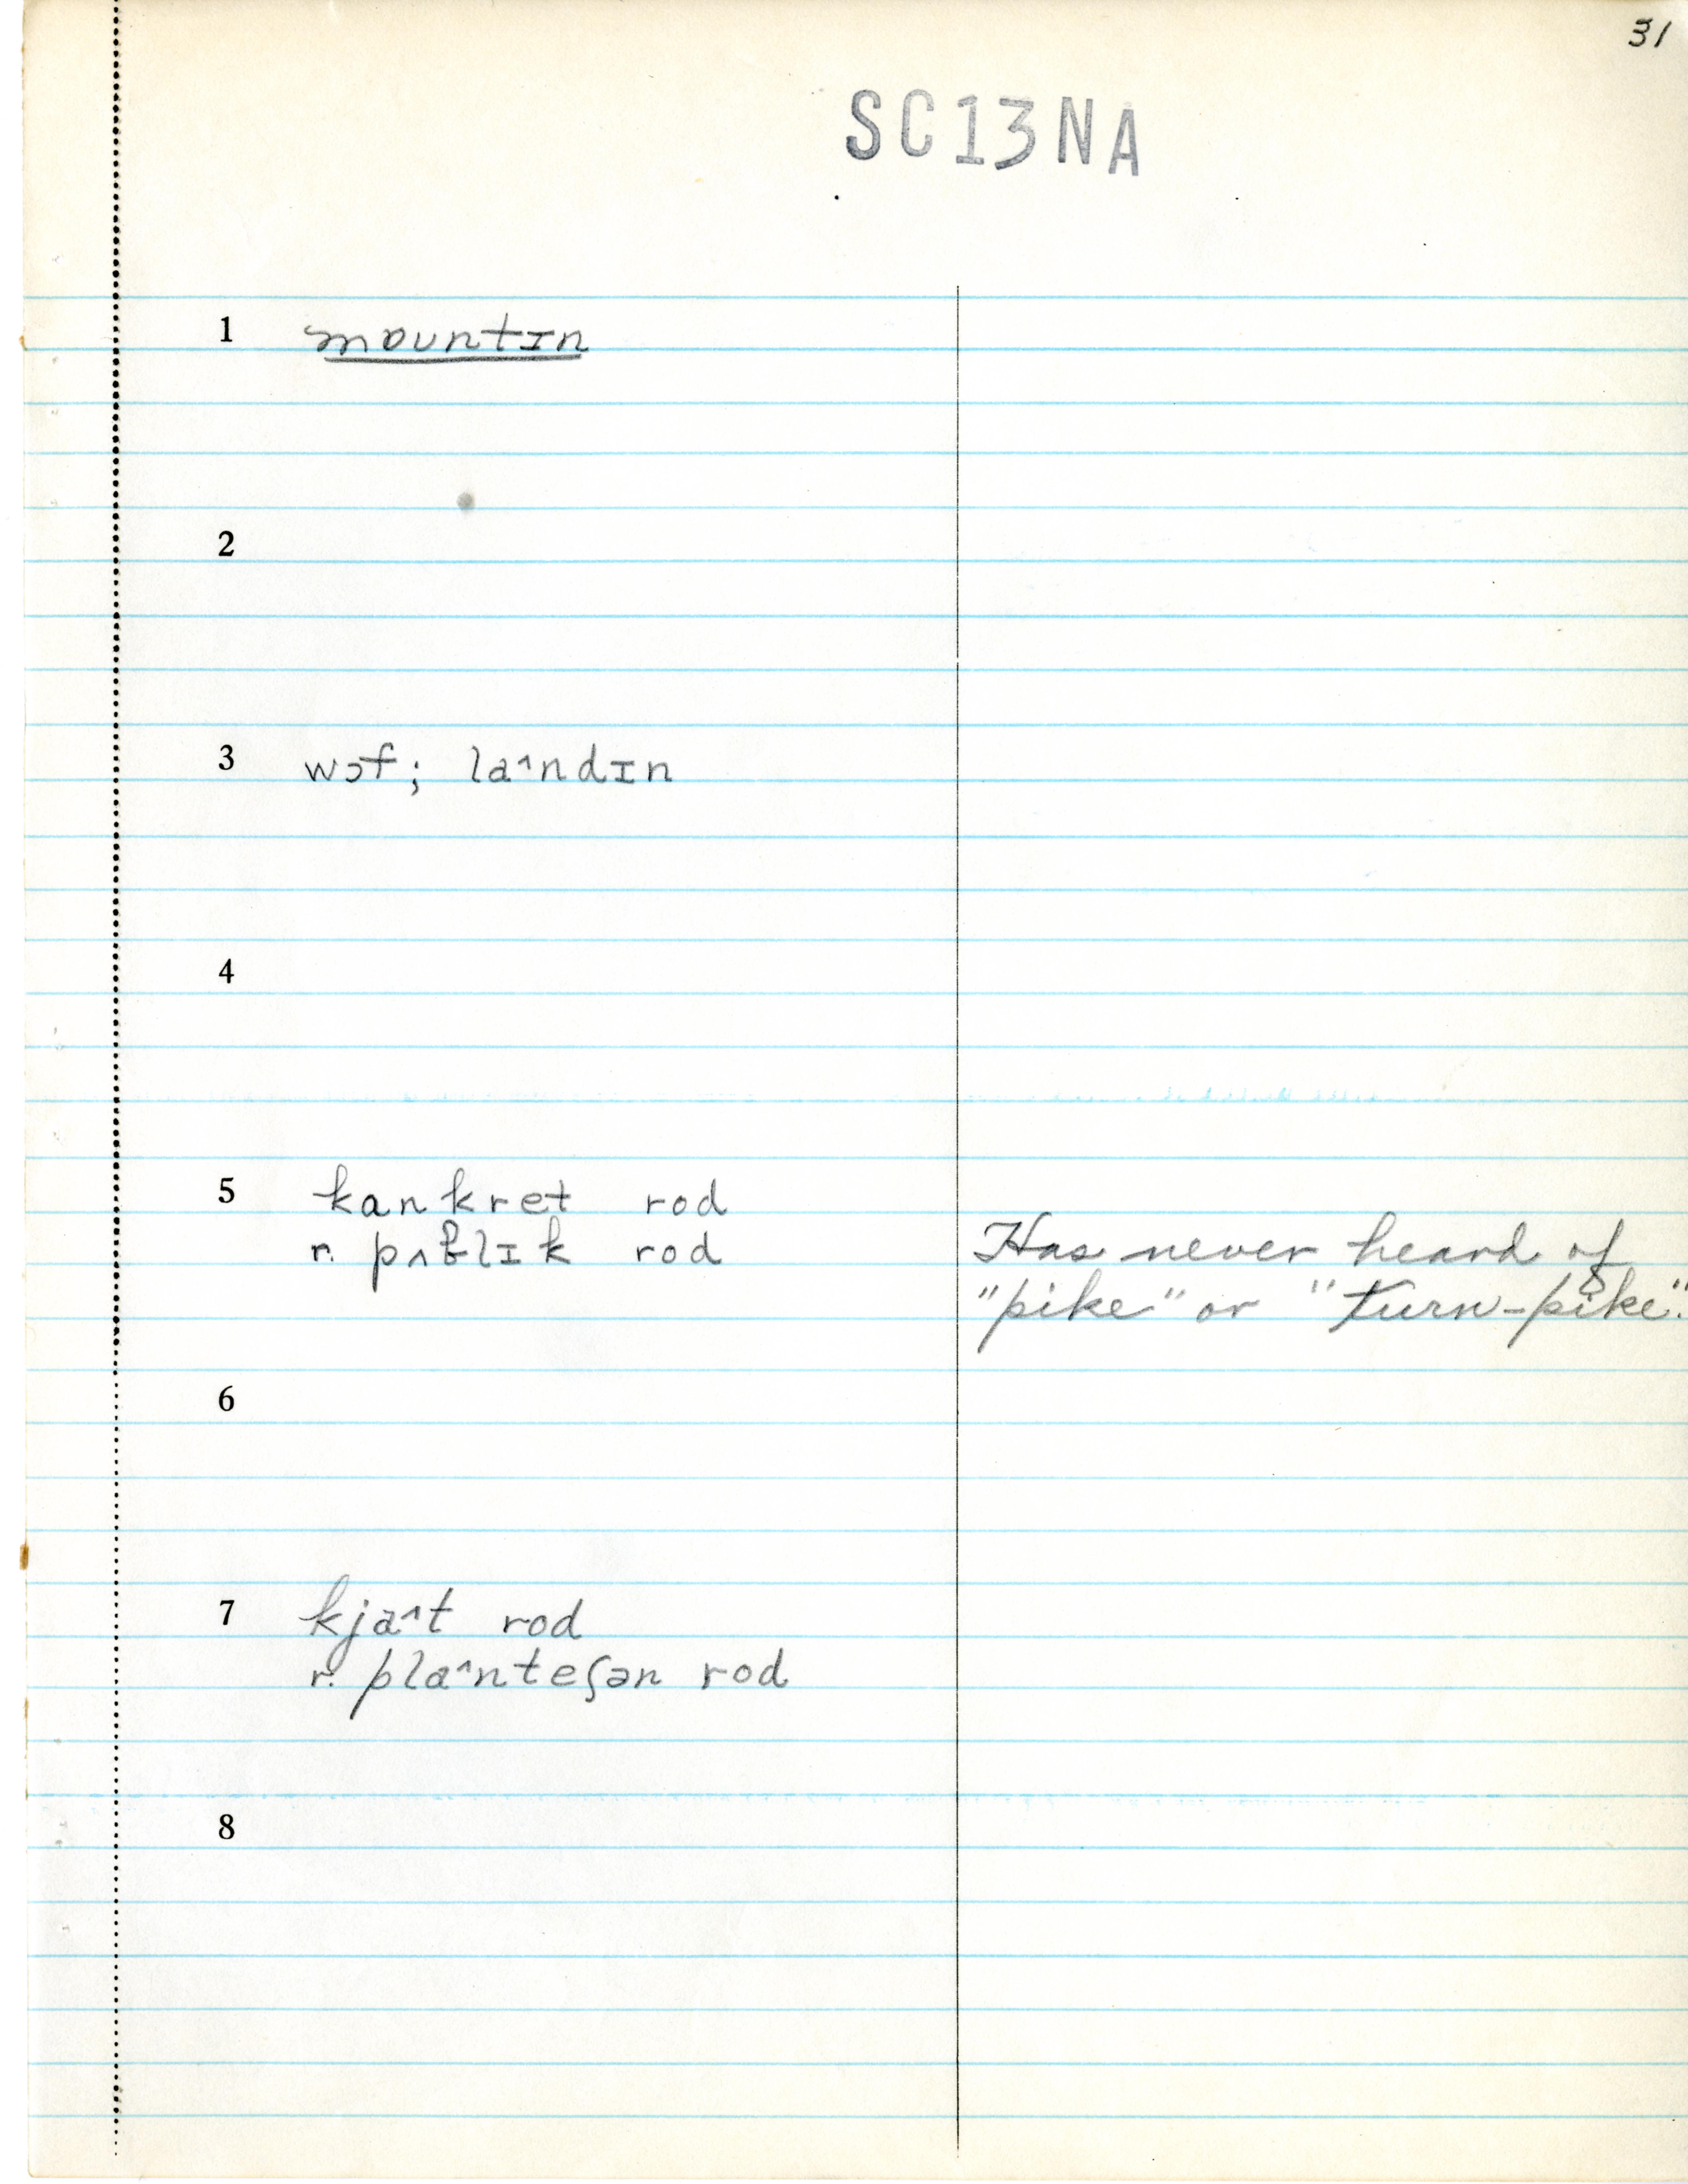 31
SC13NA
1 mauntɪn
2
3 wɔf; la^ndɪn
4
5 kankret rod
r. pʌƀlɪk rod
Has never heard of
"pike" or "turn-pike".
6
7 kja^t rod
r. pla^nteʃən rod
8